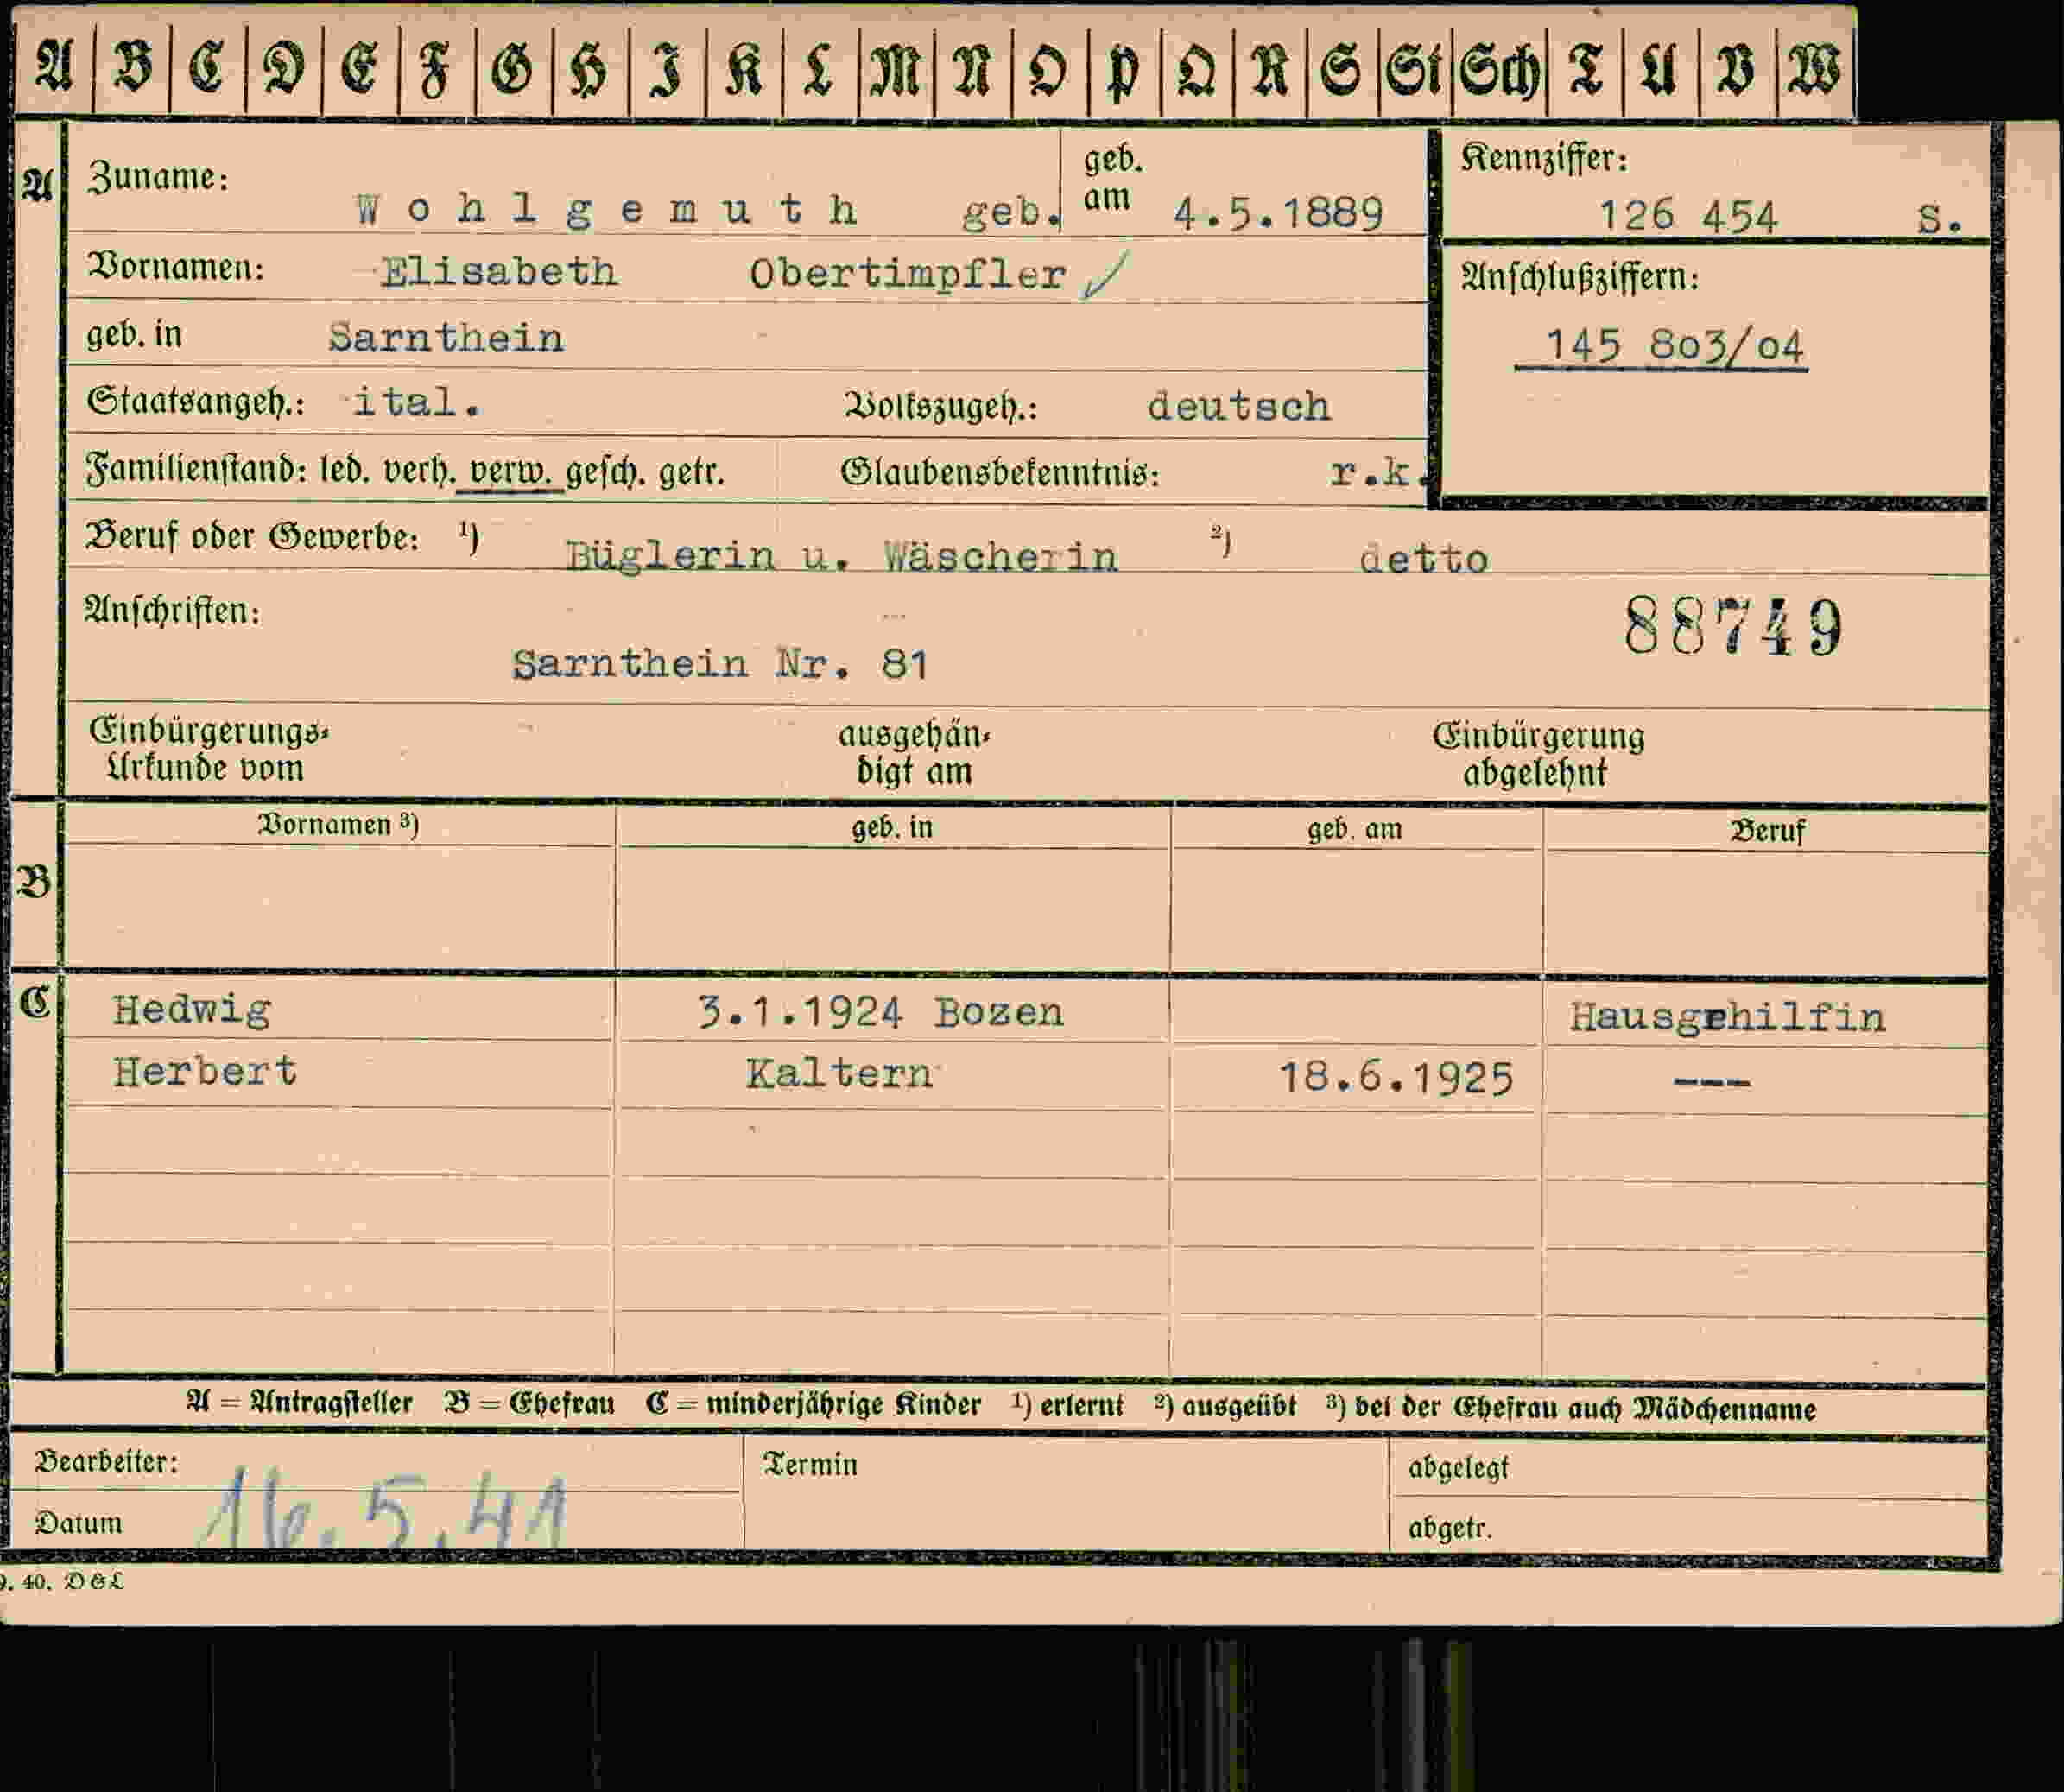 A B C D E F G H I K L M N O P Q R S St Sch T U V W
A Zuname: Wohlgemuth geb. geb. am 4.5.1889 Kennziffer: 126 454 S.
Vornamen: Elisabeth Obertimpfler ✓ Anschlußziffern:
geb. in Sarnthein 145 803/04
Staatsangeh.: ital. Volkszugeh.: deutsch
Familienstand: led. verh. verw. gesch. getr. Glaubensbekenntnis: r.k.
Beruf oder Gewerbe: ¹) Büglerin u. Wäscherin ²) detto
Anschriften: 88749
Sarnthein Nr. 81
Einbürgerungs- ausgehän- Einbürgerung
Urkunde vom digt am abgelehnt
Vornamen ³) geb. in geb. am Beruf
B
C Hedwig 3.1.1924 Bozen Hausgehilfin
Herbert Kaltern 18.6.1925 ---
A = Antragsteller B = Ehefrau C = minderjährige Kinder ¹) erlernt ²) ausgeübt ³) bei der Ehefrau auch Mädchenname
Bearbeiter: Termin abgelegt
Datum 16.5.41 abgetr.
9. 40. DGL